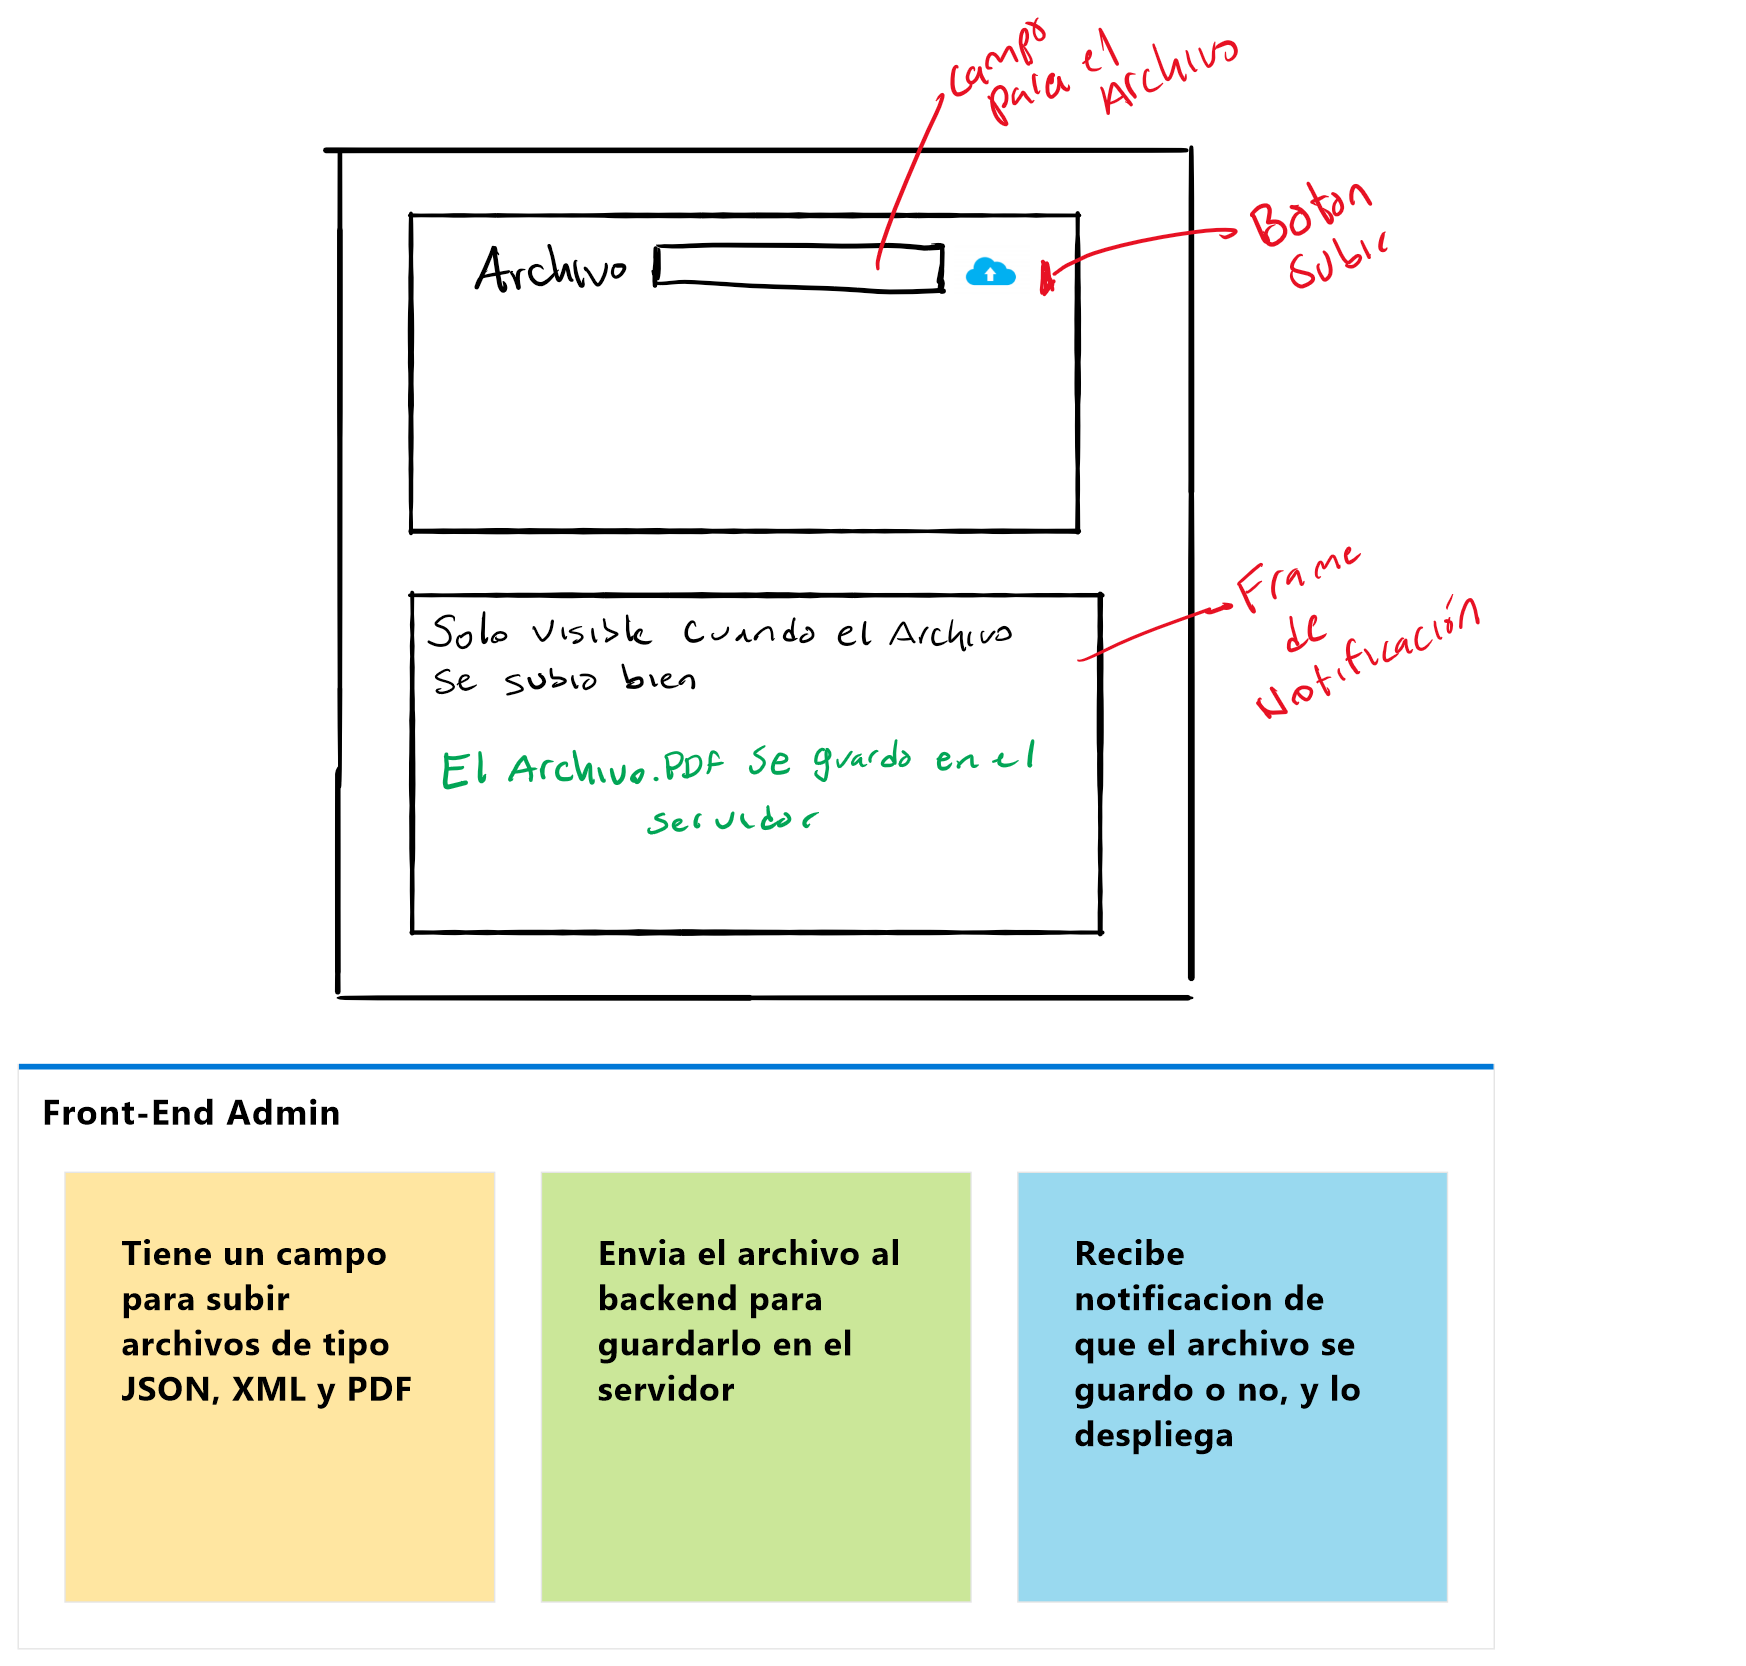 campo
para el
Archivo
Boton
subir
Archivo
Frame
de
Notificación
Solo visible cuando el Archivo
se subio bien
El Archivo.PDF se guardo en el
servidor
Front-End Admin
Tiene un campo
para subir
archivos de tipo
JSON, XML y PDF
Envia el archivo al
backend para
guardarlo en el
servidor
Recibe
notificacion de
que el archivo se
guardo o no, y lo
despliega